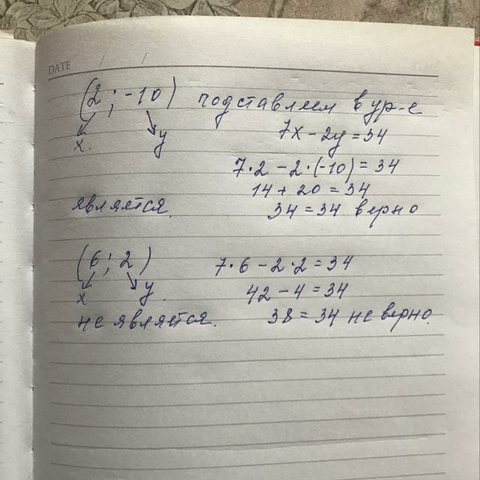 DATE / /
(2 ; -10) подставляем в ур-е
x. y 7x - 2y = 34
7·2 - 2·(-10) = 34
14 + 20 = 34
является. 34 = 34 верно
(6 ; 2) 7·6 - 2·2 = 34
x y. 42 - 4 = 34
не является. 38 = 34 не верно.